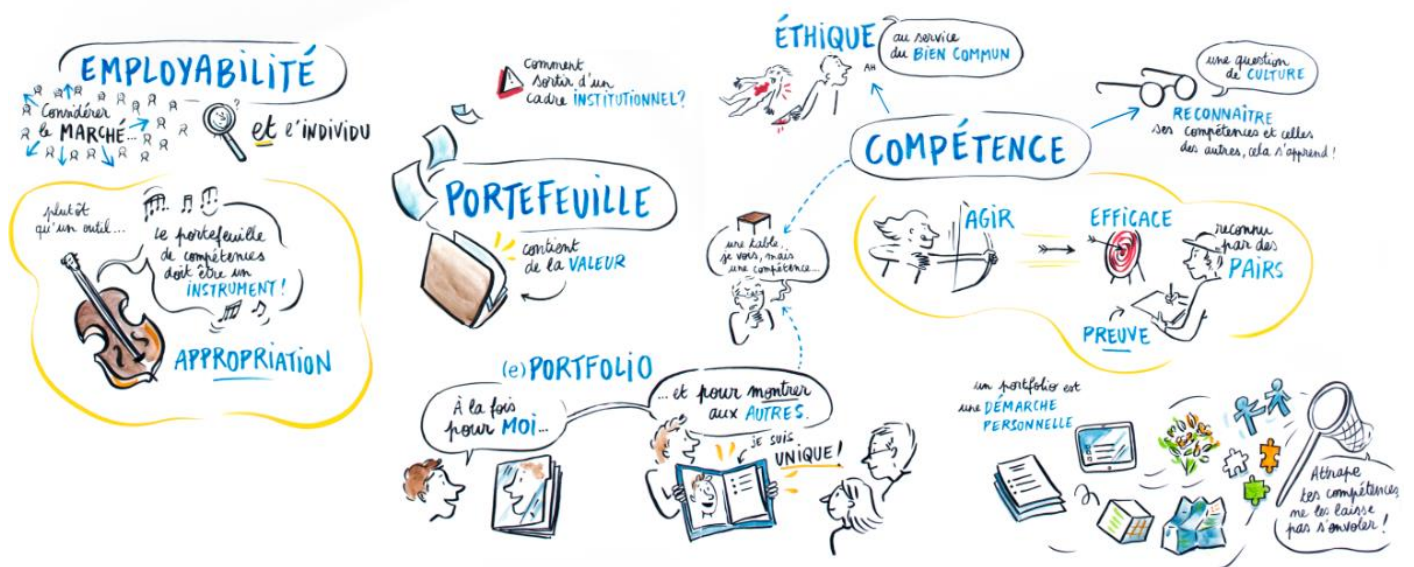 EMPLOYABILITÉ
Considérer
le MARCHÉ...
?
et l'individu
plutôt
qu'un outil...
le portefeuille
de compétences
doit être un
INSTRUMENT !
APPROPRIATION
comment
sortir d'un
cadre INSTITUTIONNEL ?
PORTEFEUILLE
contient
de la VALEUR
(e) PORTFOLIO
À la fois
pour MOI...
... et pour montrer
aux AUTRES.
JE SUIS
UNIQUE !
ÉTHIQUE
au service
du BIEN COMMUN
AH
une question
de CULTURE
RECONNAÎTRE
ses compétences et celles
des autres, cela s'apprend !
COMPÉTENCE
une table,
je vois, mais
une compétence...
AGIR
EFFICACE
reconnu
par des
PAIRS
PREUVE
un portfolio est
une DÉMARCHE
PERSONNELLE
Attrape
tes compétences,
ne les laisse
pas s'envoler !